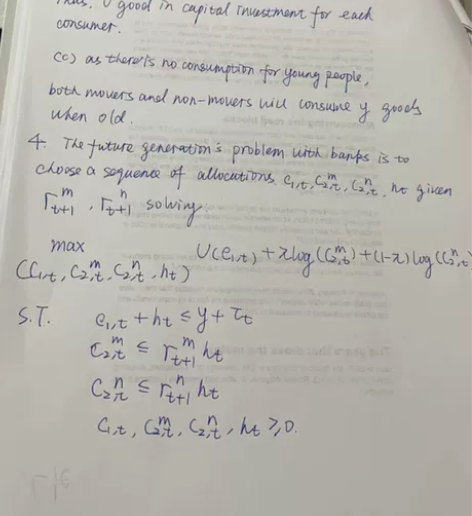 Thus, 0 good in capital investment for each
consumer.
(c) as there is no consumption for young people,
both movers and non-movers will consume y goods
when old.
4. The future generation's problem with banks is to
choose a sequence of allocations c₁,t, C₂,tᵐ, C₂,tⁿ, ht given
rₜ₊₁ᵐ, rₜ₊₁ⁿ solving
max U(c₁,t) + π log(C₂,tᵐ) + (1-π) log(C₂,tⁿ
(C₁,t, C₂,tᵐ, C₂,tⁿ, ht)
S.T. c₁,t + ht ≤ y + τt
C₂,tᵐ ≤ rₜ₊₁ᵐ ht
C₂,tⁿ ≤ rₜ₊₁ⁿ ht
C₁,t, C₂,tᵐ, C₂,tⁿ, ht ≥ 0.